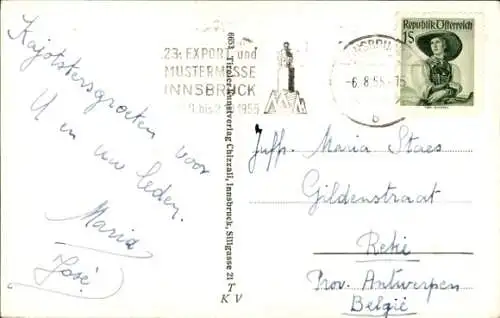 Kajotstersgroeten voor
U en uw leden.
Maria
José
23. EXPORT- und
MUSTERMESSE
INNSBRUCK
bis 2. 1955
6653 Tiroler Kunstverlag Chizzali, Innsbruck, Sillgasse 21
T
K V
INNSBRUCK
-6.8.55-15
b
Republik Österreich
1S
Juffr. Maria Staes
Gildenstraat
Retie
Prov. Antwerpen
België